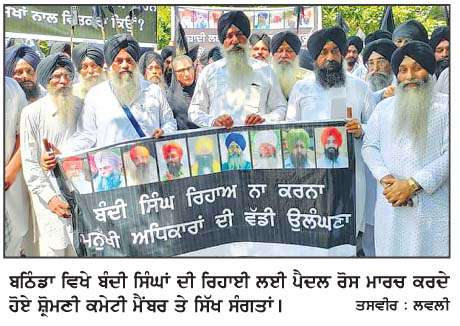 ਨਾਲ ਵਿਤਕਰਾ ਕਿਉਂ?
ਬੰਦੀ ਸਿੰਘ ਰਿਹਾਅ ਨਾ ਕਰਨਾ
ਮਨੁੱਖੀ ਅਧਿਕਾਰਾਂ ਦੀ ਵੱਡੀ ਉਲੰਘਣਾ
ਬਠਿੰਡਾ ਵਿਖੇ ਬੰਦੀ ਸਿੰਘਾਂ ਦੀ ਰਿਹਾਈ ਲਈ ਪੈਦਲ ਰੋਸ ਮਾਰਚ ਕਰਦੇ
ਹੋਏ ਸ਼੍ਰੋਮਣੀ ਕਮੇਟੀ ਮੈਂਬਰ ਤੇ ਸਿੱਖ ਸੰਗਤਾਂ। ਤਸਵੀਰ : ਲਵਲੀ